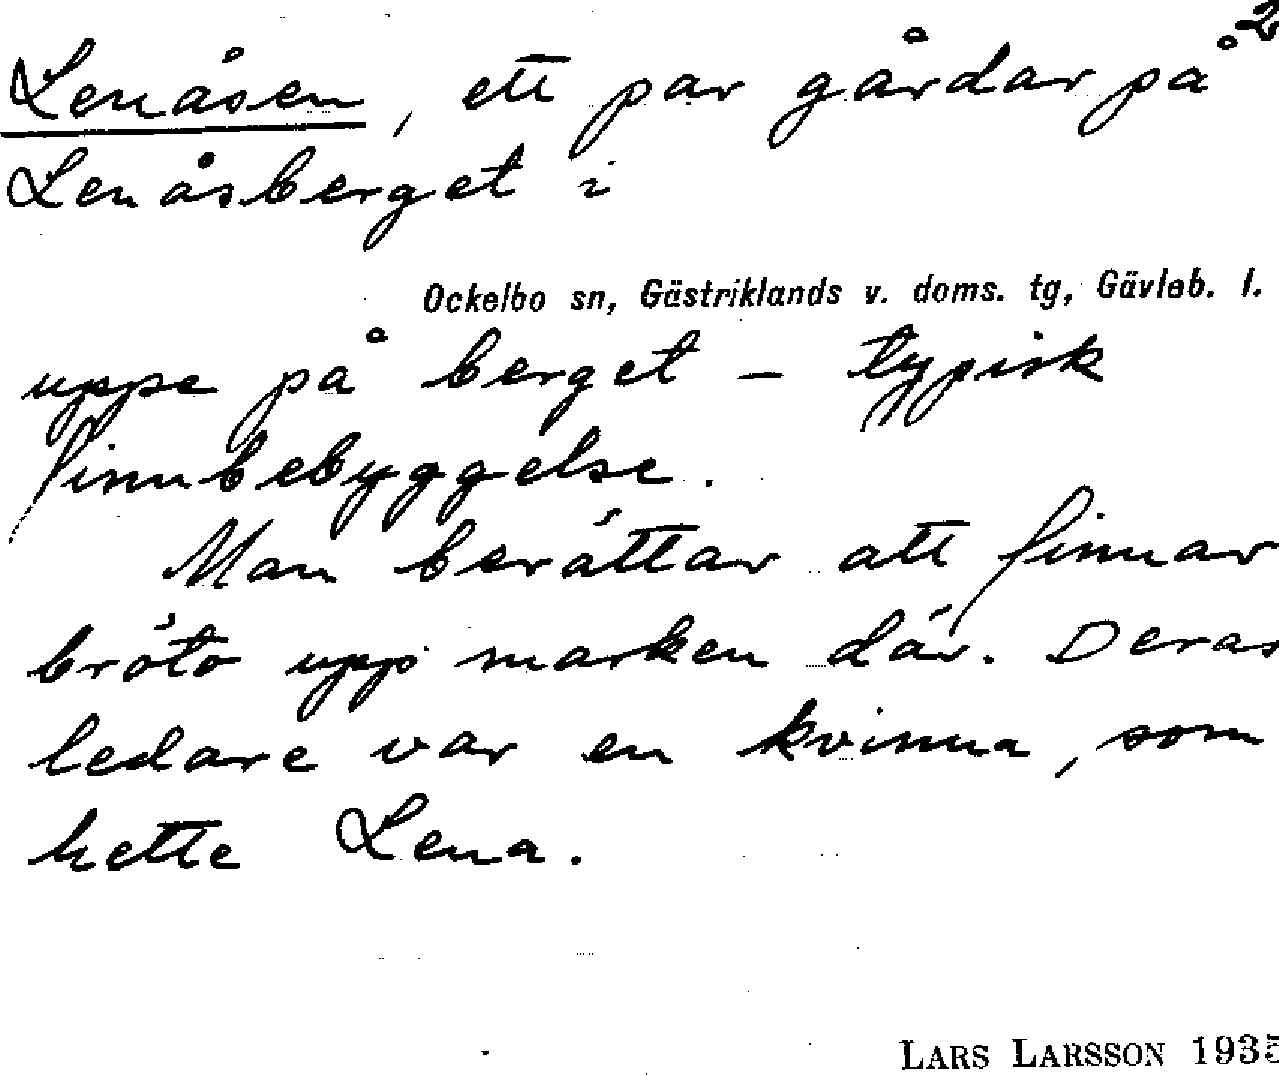 2
Lenåsen, ett par gårdar på
Lenåsberget i
Ockelbo sn, Gästriklands v. doms. tg, Gävleb. l.
uppe på berget – typisk
finnbebyggelse.
Man berättar att finnar
bröto upp marken där. Deras
ledare var en kvinna, som
hette Lena.
LARS LARSSON 1935